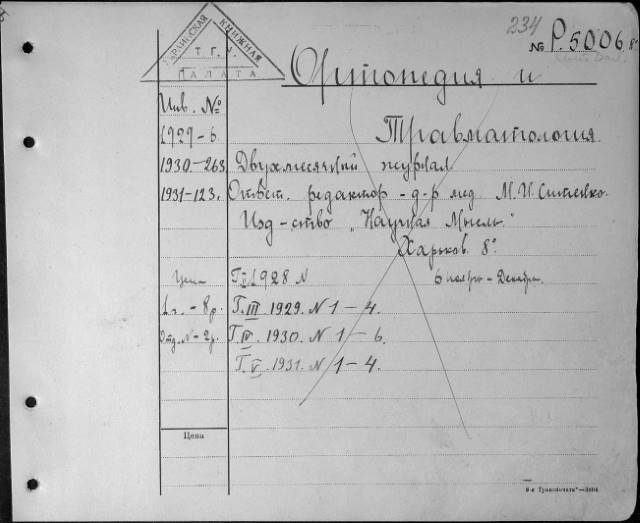 234
№ Р.5006 8°
УКРАИНСКАЯ КНИЖНАЯ
ПАЛАТА
Ортопедия и
Травматология
Инв. №
1929-6
1930-263. Двухмесячный журнал
1931-123. Ответ. редактор - д-р мед М.И. Ситенко.
Изд-ство „Научная Мысль"
Харьков. 8°.
Цена Г. II 1928 N 6 ноябрь - Декабрь.
1 г. - 8 р. Г. III 1929. N 1-4.
Отд. N - 2 р. Г. IV. 1930. N 1-6.
Г. V. 1931. N 1-4.
Цена